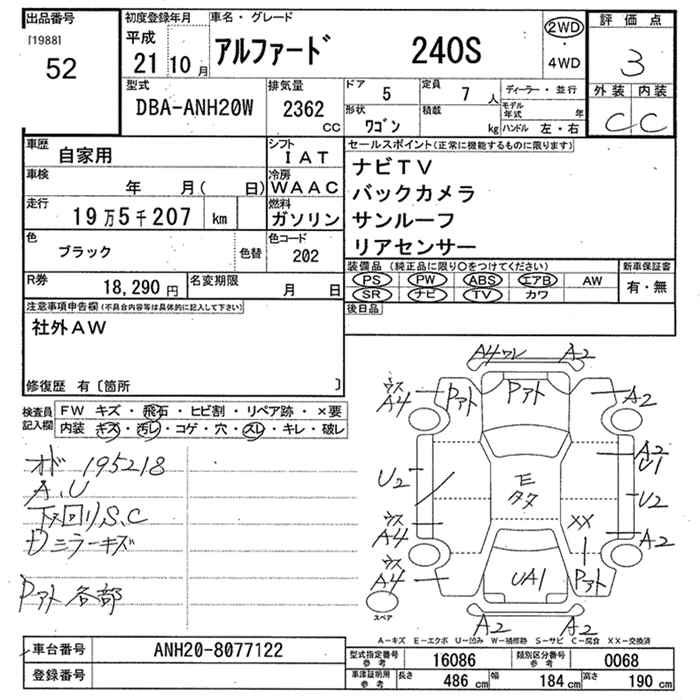 出品番号
[1988]
52
初度登録年月
平成
21 10 月
車名・グレード
アルファード 240S
2WD
・
4WD
評価点
3
外装 内装
C C
型式
DBA-ANH20W
排気量
2362
CC
ドア
5
形状
ワゴン
定員
7 人
積載
kg
ディーラー・並行
モデル年式 年
ハンドル 左・右
車歴
自家用
シフト
IAT
車検
年 月( 日)
冷房
WAAC
走行
19万5千207 km
燃料
ガソリン
色
ブラック
色替
色コード
202
R券
18,290 円
名変期限
月 日
セールスポイント(正常に機能するものに限ります)
ナビTV
バックカメラ
サンルーフ
リアセンサー
装備品 (純正品に限り○をつけてください)
PS PW ABS エアB AW
SR ナビ TV カワ
新車保証書
有・無
後日品
注意事項申告欄(不具合内容等は具体的に記入して下さい)
社外AW
修復歴 有〔箇所 〕
検査員記入欄
FW キズ・飛石・ヒビ割・リペア跡・×要
内装 キズ・汚レ・コゲ・穴・スレ・キレ・破レ
オド 195218
A,U
下回りS,C
Dミラーキズ
Pアト各部
A4ワレ A2
ウス
A4
Pアト
Pアト
A2
A2
U1
U2
U2
E
タタ
ウス
A4
XX
A2
ウス
A4
UA1
Pアト
スペア
A2 A2
A-キズ E-エクボ U-凹み W-補修跡 S-サビ C-腐食 XX-交換済
車台番号
ANH20-8077122
登録番号
型式指定番号
参考
16086
類別区分番号
参考
0068
車庫証明用
参考
長さ
486 cm
幅
184 cm
高さ
190 cm